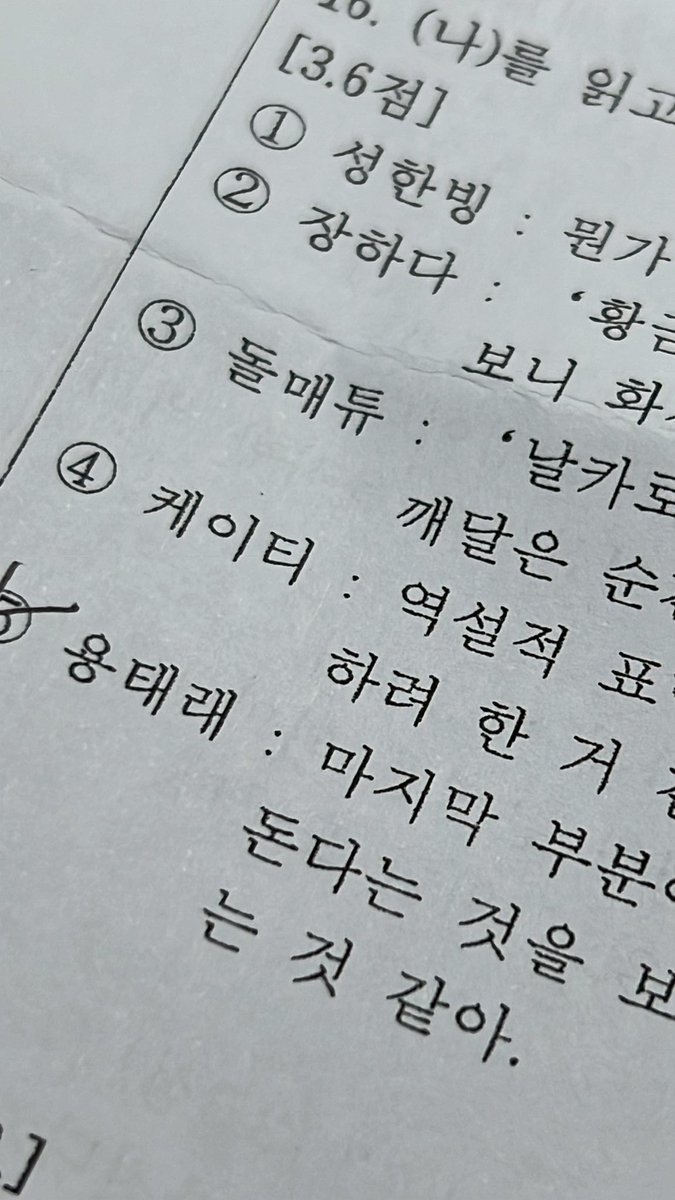 16. (나)를 읽고
[3.6점]
① 성한빙 : 뭔가
② 장하다 : ‘황금
보니
③ 돌매튜 : ‘날카로
깨달은
④ 케이티 : 역설적
하려 한 거
⑤ 용태래 : 마지막 부분
돈다는 것을
는 것 같아.
]